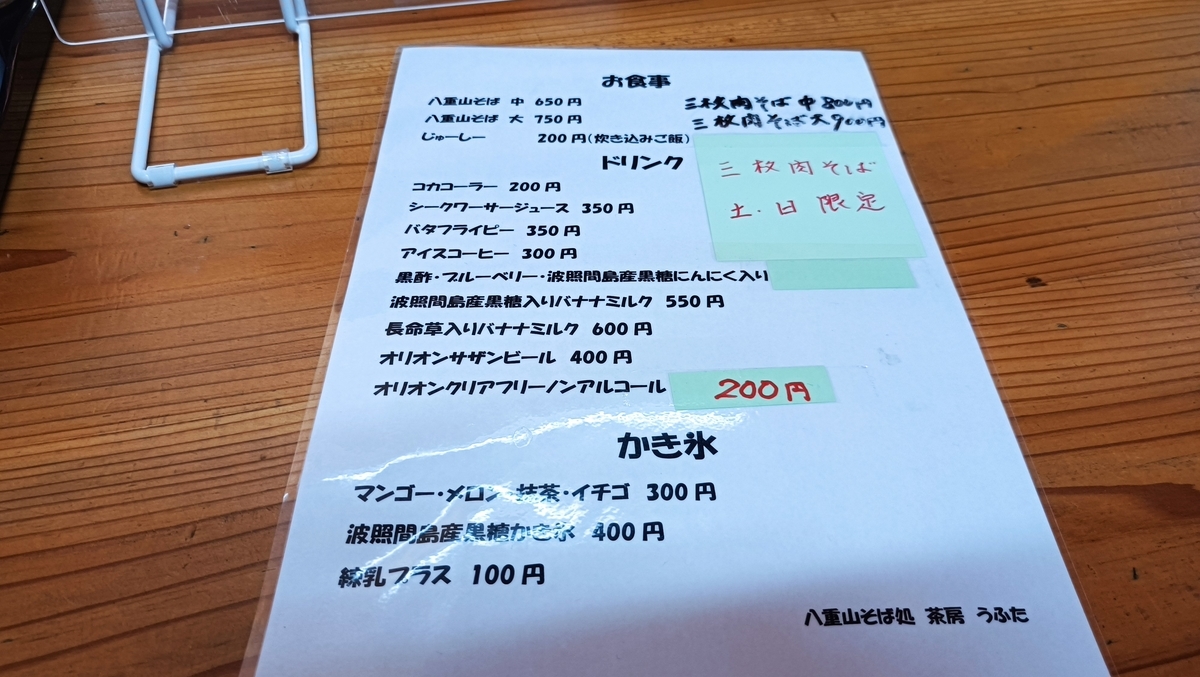 お食事
八重山そば 中 650円
八重山そば 大 750円
じゅーしー 200円(炊き込みご飯)
三枚肉そば 中 800円
三枚肉そば大900円
三枚肉そば
土.日限定
ドリンク
コカコーラー 200円
シークワーサージュース 350円
バタフライピー 350円
アイスコーヒー 300円
黒酢・ブルーベリー・波照間島産黒糖にんにく入り
波照間島産黒糖入りバナナミルク 550円
長命草入りバナナミルク 600円
オリオンサザンビール 400円
オリオンクリアフリーノンアルコール 200円
かき氷
マンゴー・メロン・抹茶・イチゴ 300円
波照間島産黒糖かき氷 400円
練乳プラス 100円
八重山そば処 茶房 うふた